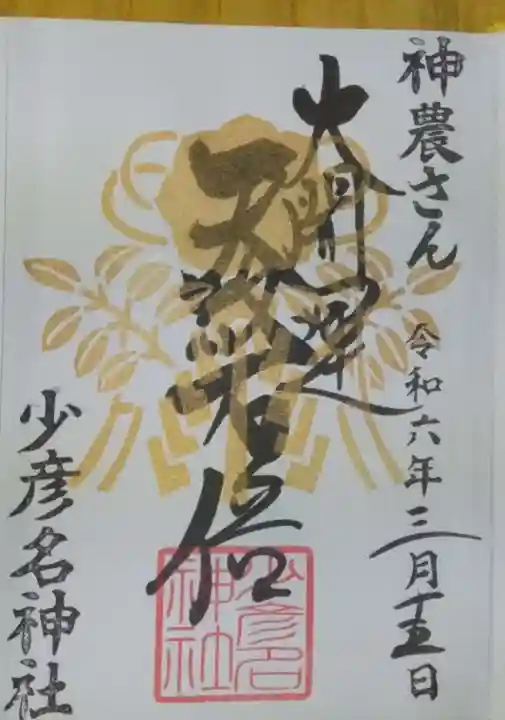 神農さん
令和六年三月十五日
大開運
天
少彦名神社
少彦名
神社